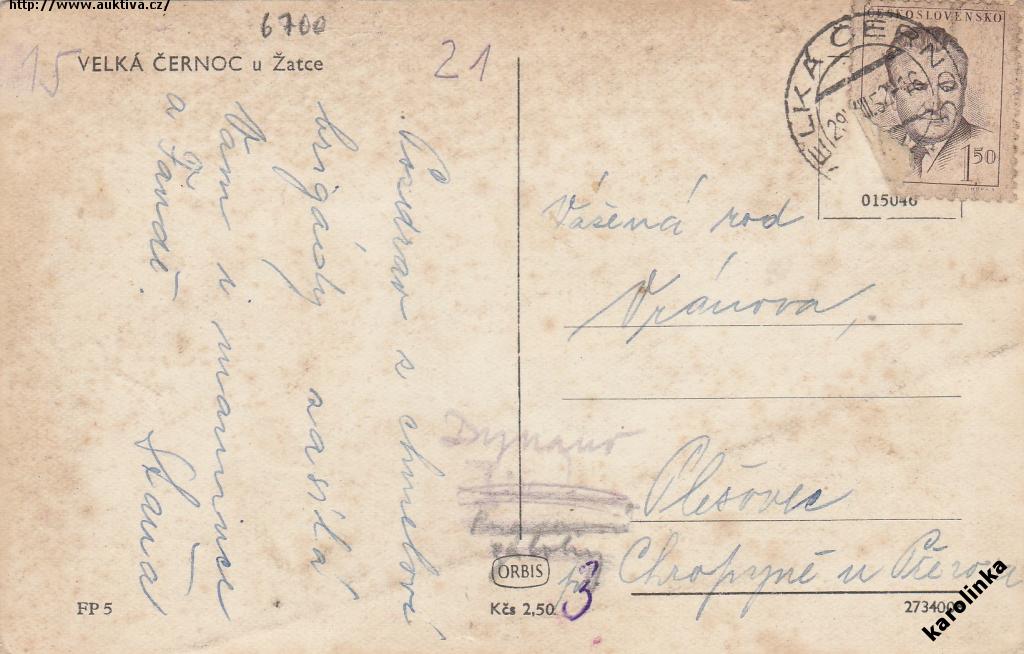 http://www.auktiva.cz/
6700
15
VELKÁ ČERNOC u Žatce
21
Pozdrav s chmelové
brigády zasílá
Vám i mamince
a Fandě.
Stáňa
FP 5
ČESKOSLOVENSKO
1.50
VELKÁ ČERNOC
015046
Vážená rod
Vránova,
Plešovec
Chropyně u Přerova
Dynamo
ORBIS
Kčs 2,50
3
273400
karolinka